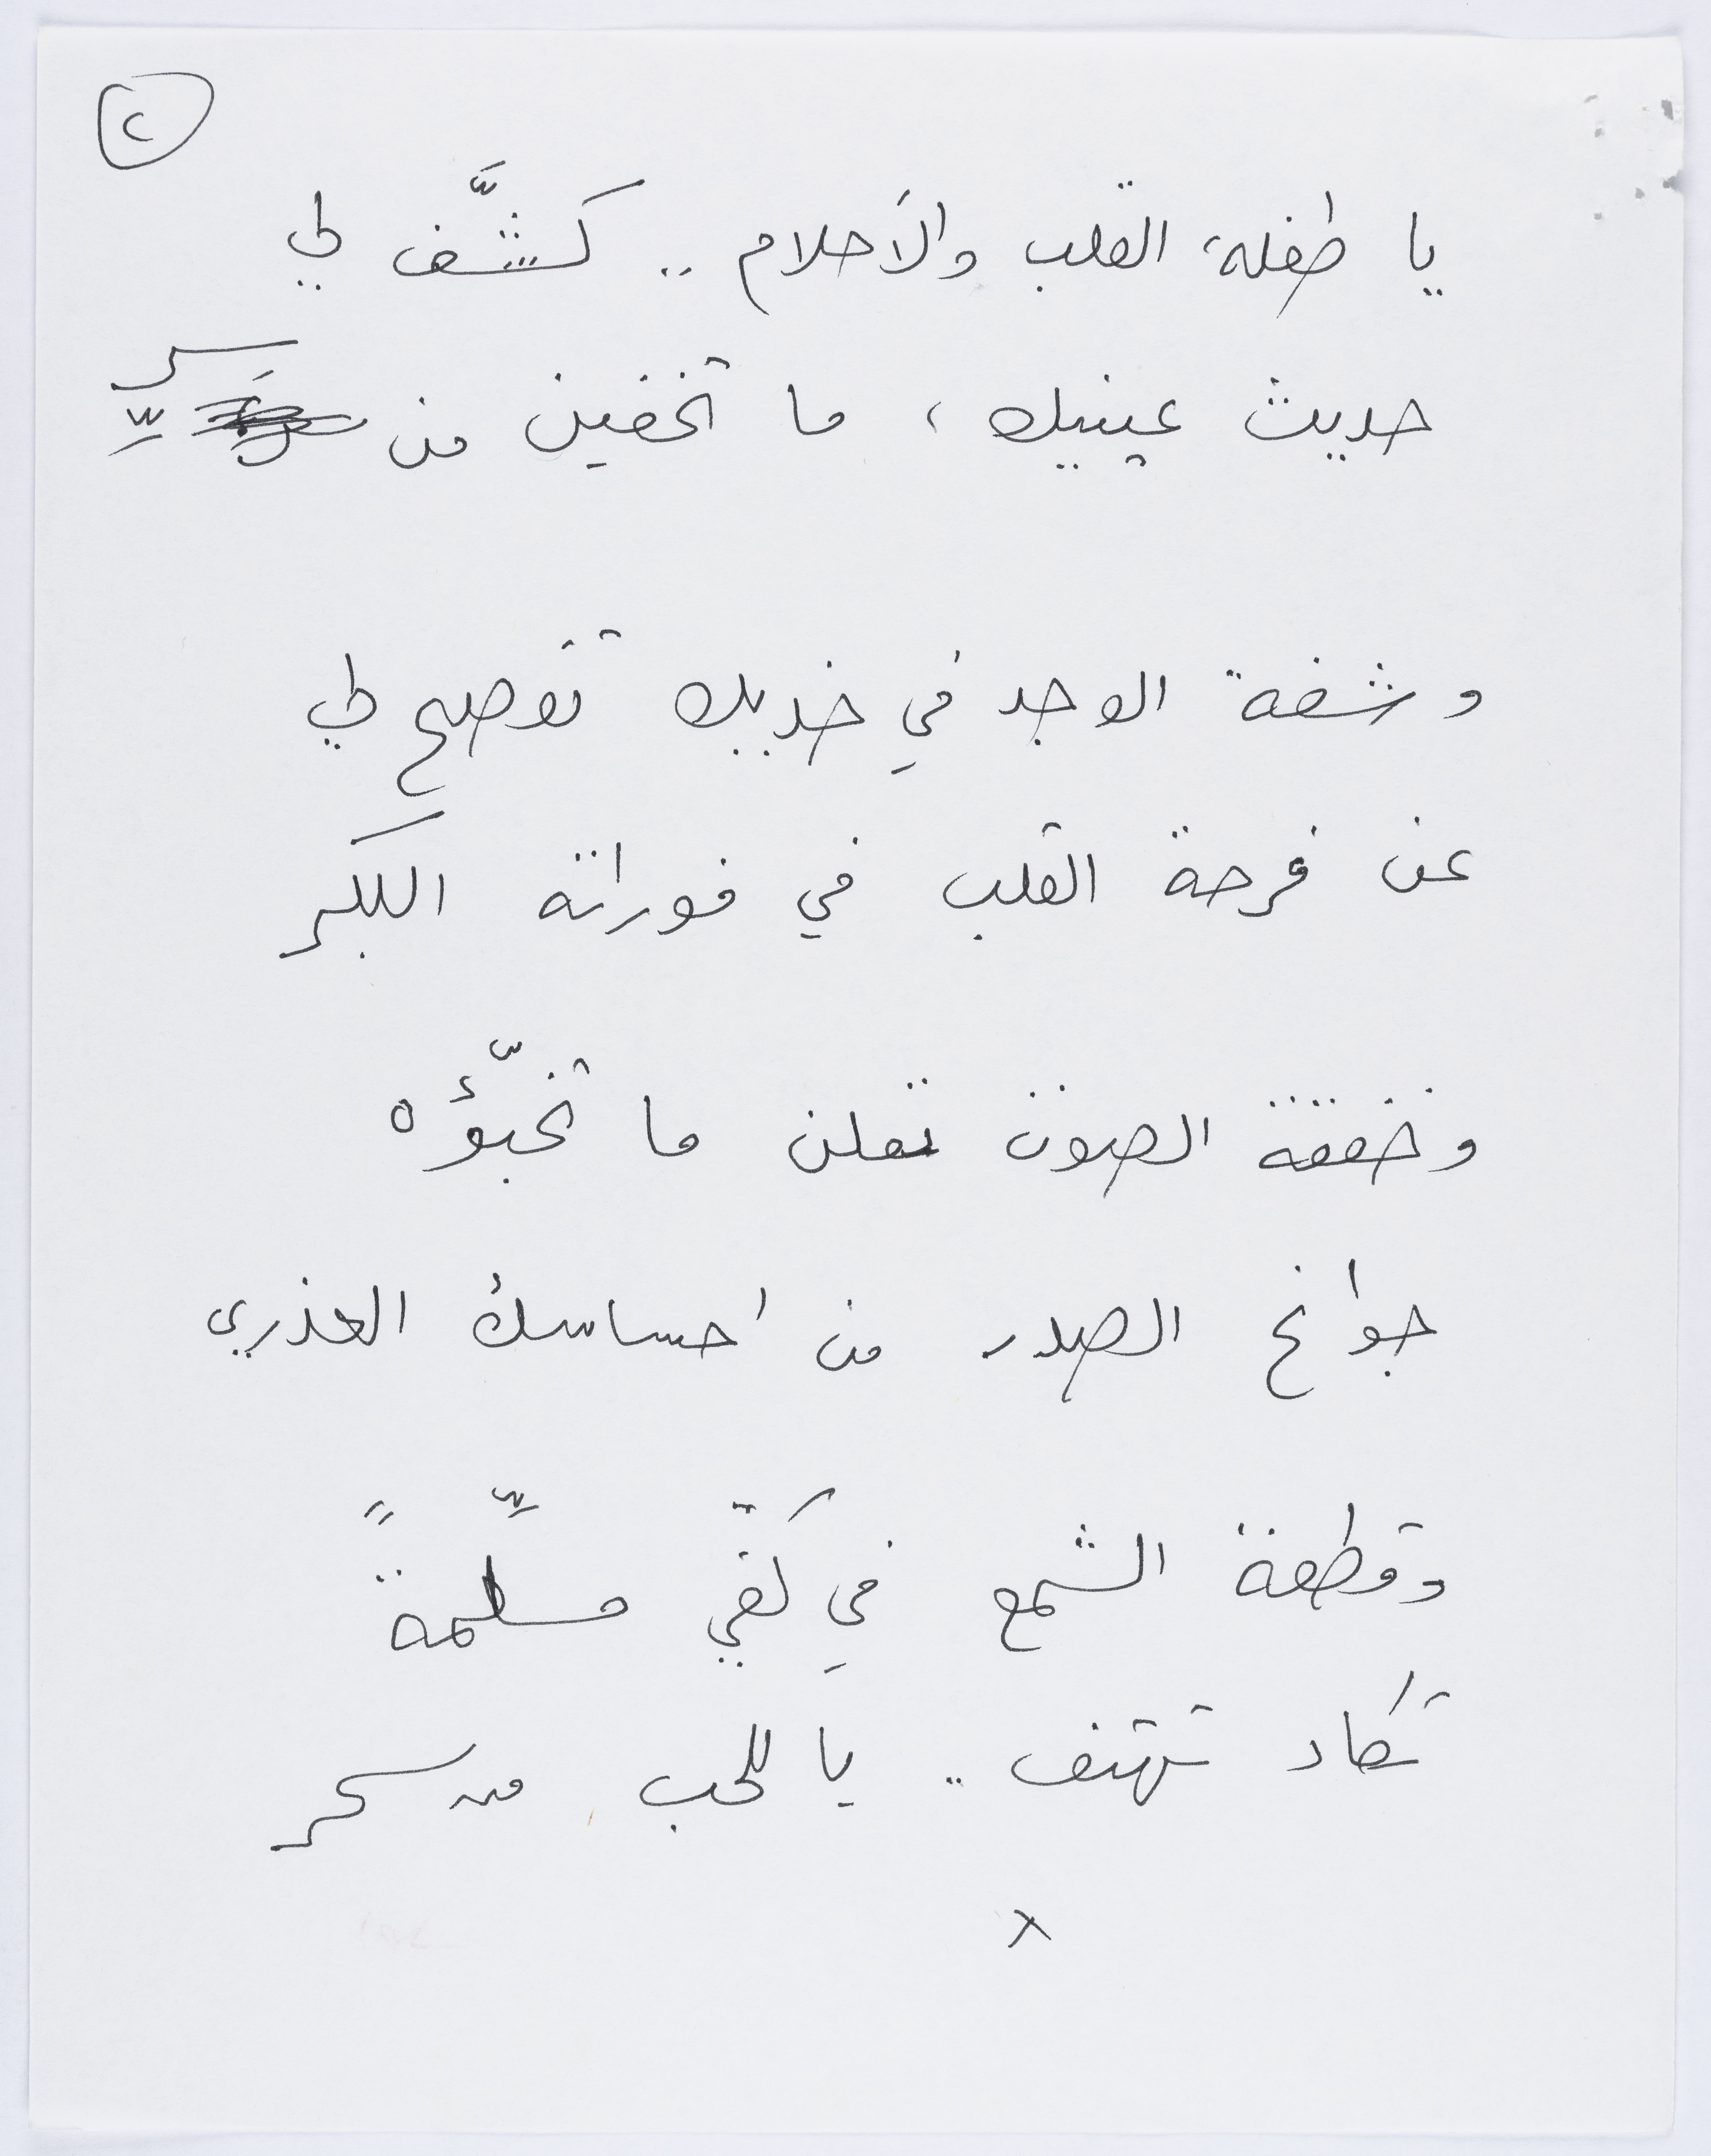 ٢
يا طفلة القلب والأحلام .. كشَّف لي
حديث عينيك ، ما تخفين من سرِّ
وشفة الوجد في خديك تفصح لي
عن فرحة القلب في فوراته البكر
وخفقة الصوت تعلن ما تخبّؤه
جوانح الصدر من احساسك العذري
وقطعة الشمع في كفّي مسلِّمةً
تكاد تهتف .. يا للحب من سحر
x